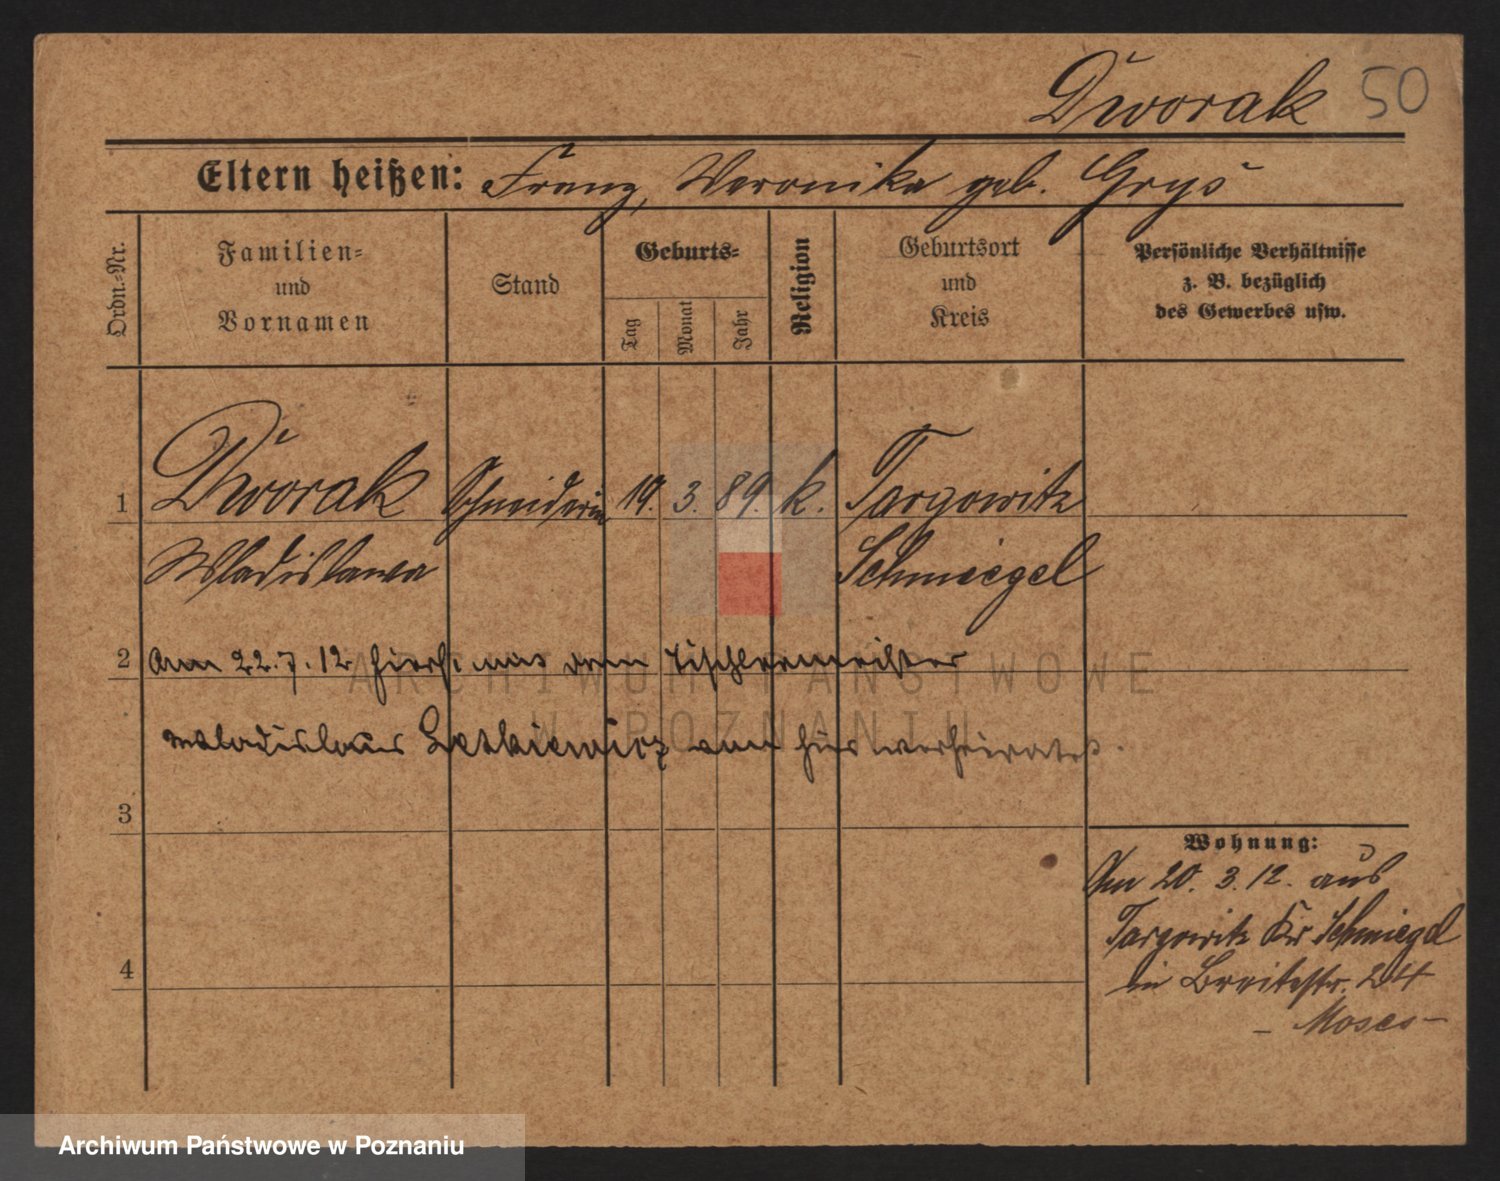 Dworak 50
Eltern heißen: Franz, Veronika geb. Gryś
Ordn.-Nr.
Familien-
und
Vornamen
Stand
Geburts-
Tag
Monat
Jahr
Religion
Geburtsort
und
Kreis
Persönliche Verhältnisse
z. B. bezüglich
des Gewerbes usw.
1 Dworak Schneiderin 19. 3. 89. k. Targowitz
Wladislawa Schmiegel
2 Am 22.7.12 hiers. mit dem Tischlermeister
Wladislaus von hier verheiratet.
3
Wohnung:
Am 20. 3. 12. aus
Targowitz Kr Schmiegel
in Breitestr. 24
– Moses –
4
ARCHIWUM PAŃSTWOWE
W POZNANIU
Archiwum Państwowe w Poznaniu